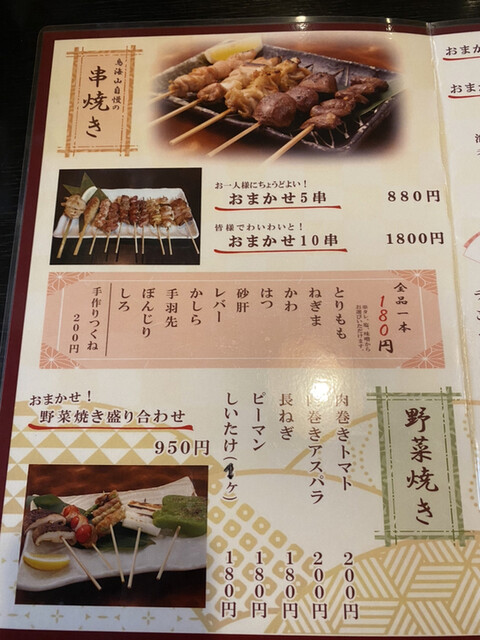 鳥海山自慢の
串焼き
お一人様にちょうどよい!
おまかせ5串 880円
皆様でわいわいと!
おまかせ10串 1800円
全品一本
180円
※タレ、塩、味噌から
お選びいただけます。
とりもも
ねぎま
かわ
はつ
砂肝
レバー
かしら
手羽先
ぼんじり
しろ
手作りつくね
200円
野菜焼き
肉巻きトマト 200円
肉巻きアスパラ 200円
長ねぎ 180円
ピーマン 180円
しいたけ(1ヶ) 180円
おまかせ!
野菜焼き盛り合わせ
950円
おまか
おまか